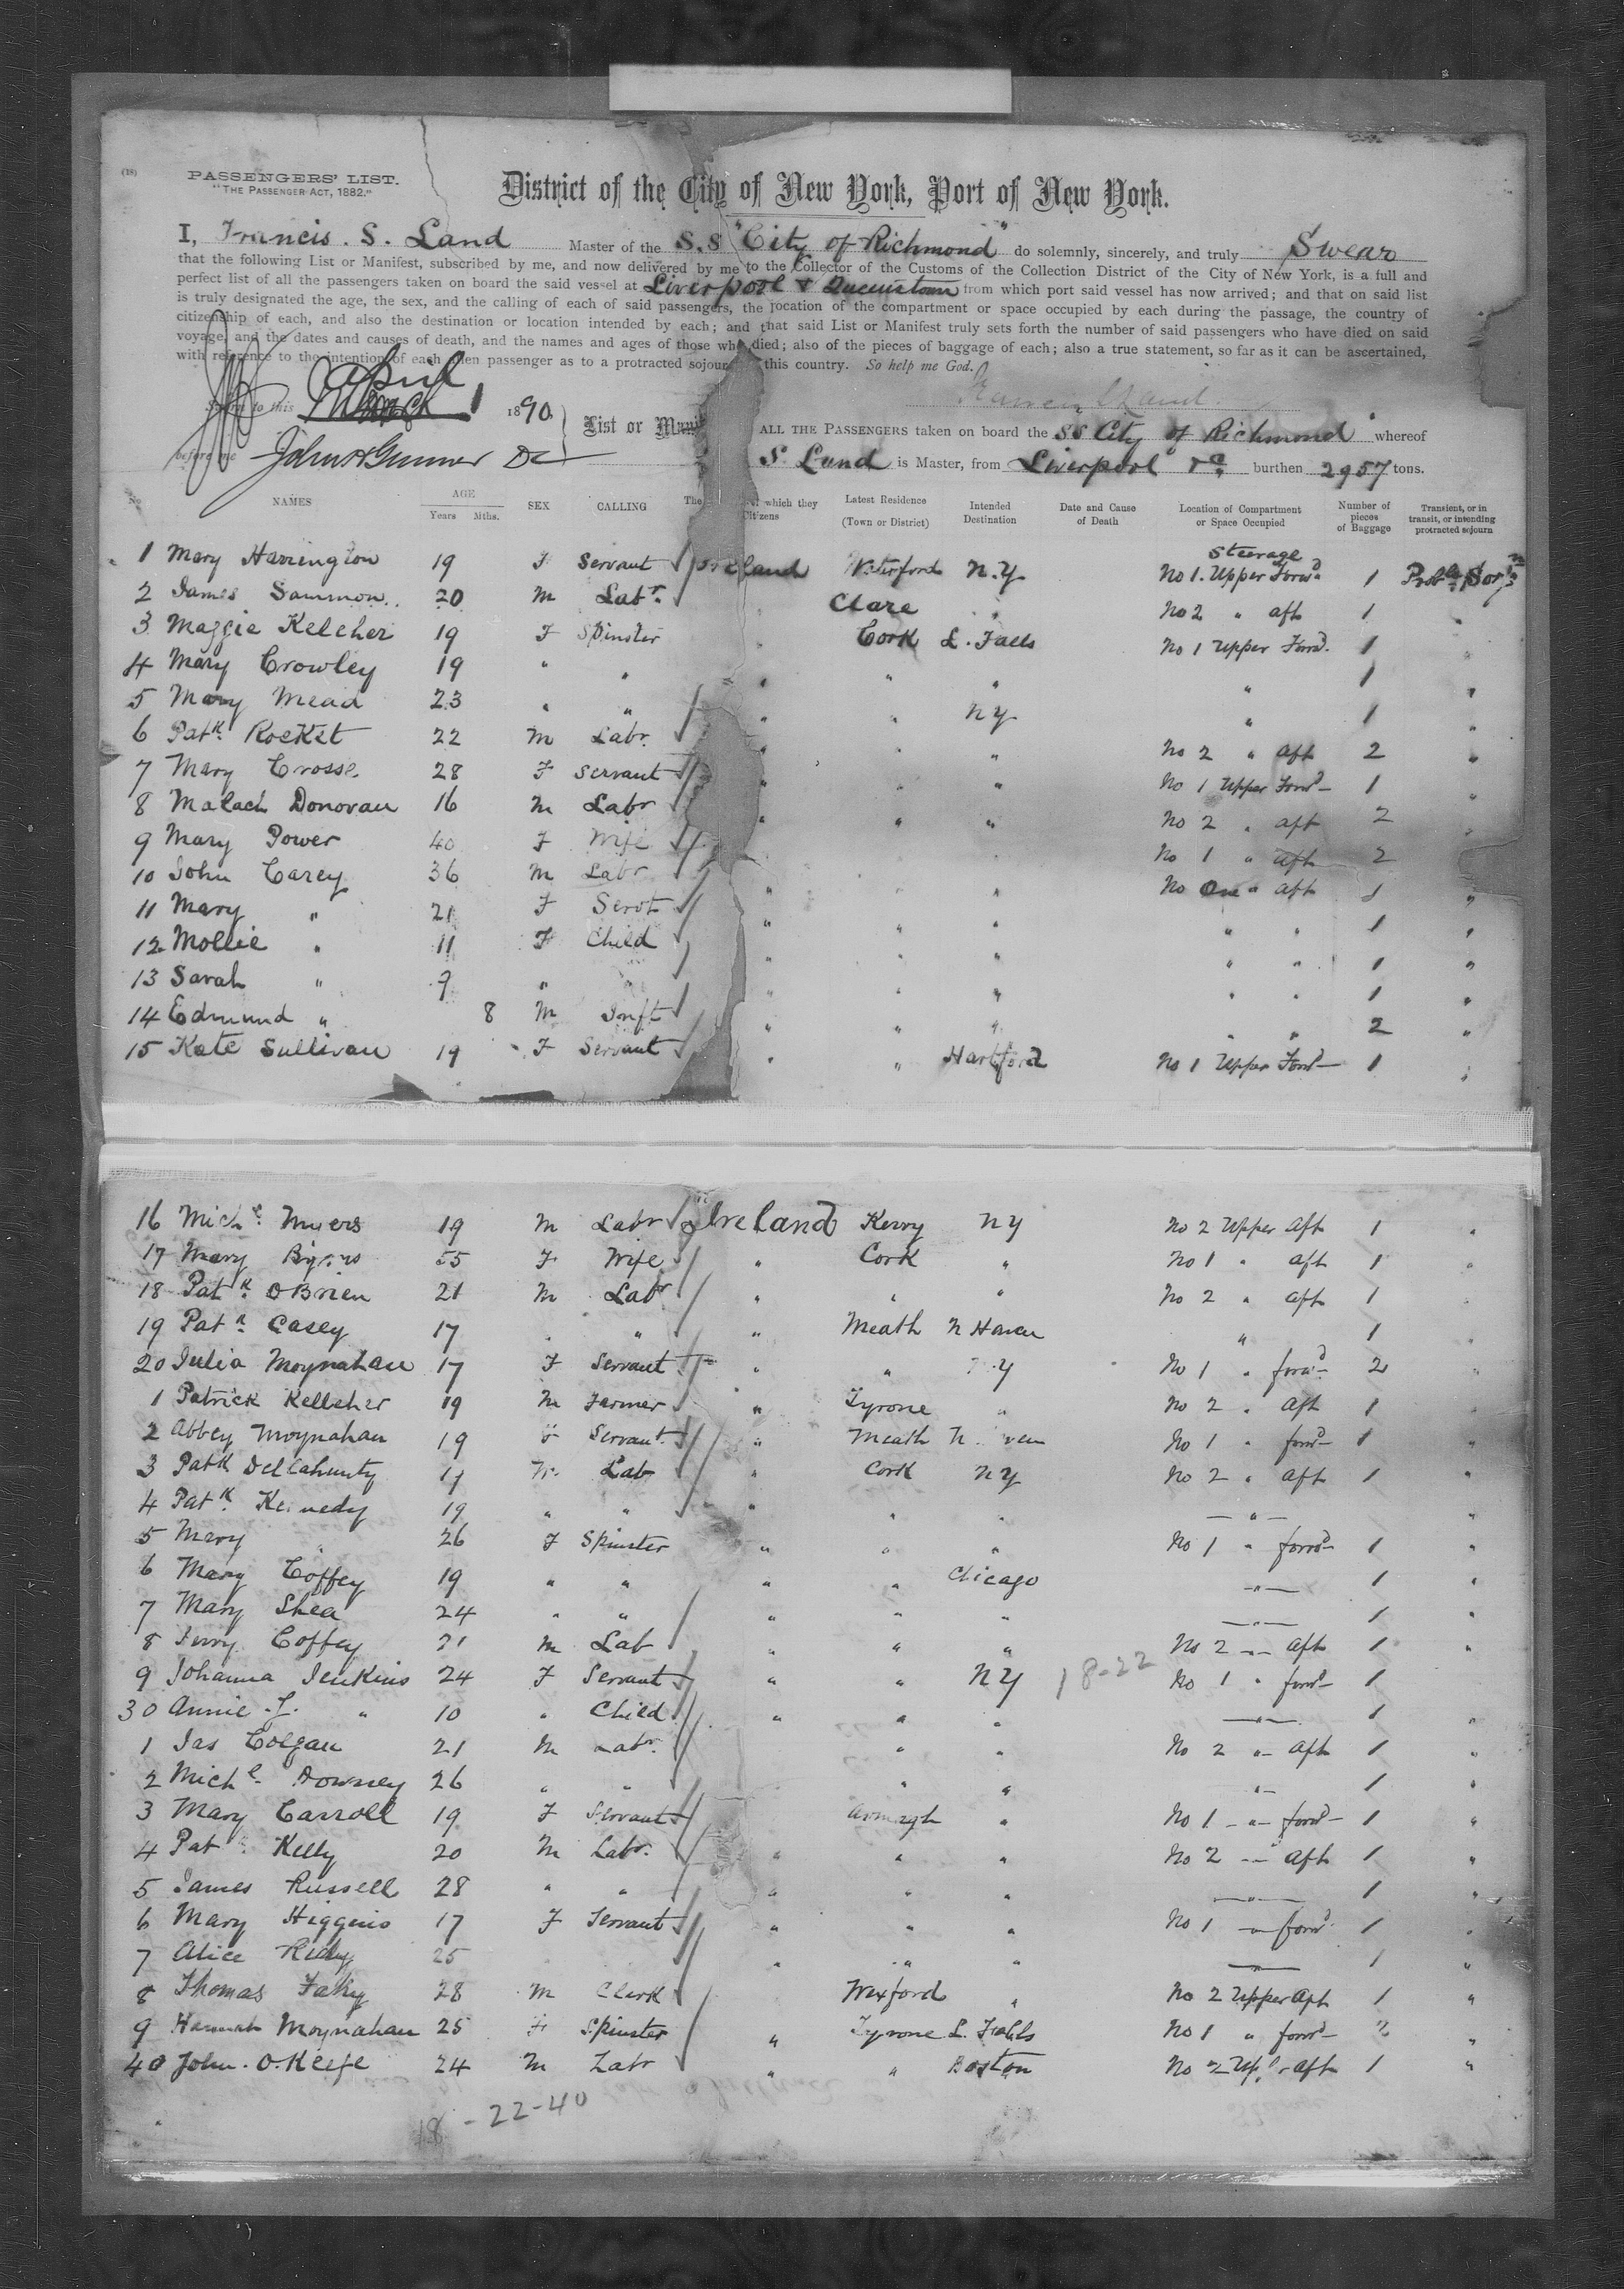 (18)
PASSENGERS' LIST.
"THE PASSENGER ACT, 1882."
District of the City of New York, Port of New York.
I, Francis . S. Land Master of the S.S "City of Richmond" do solemnly, sincerely, and truly Swear
that the following List or Manifest, subscribed by me, and now delivered by me to the Collector of the Customs of the Collection District of the City of New York, is a full and
perfect list of all the passengers taken on board the said vessel at Liverpool & Queenstown from which port said vessel has now arrived; and that on said list
is truly designated the age, the sex, and the calling of each of said passengers, the location of the compartment or space occupied by each during the passage, the country of
citizenship of each, and also the destination or location intended by each; and that said List or Manifest truly sets forth the number of said passengers who have died on said
voyage, and the dates and causes of death, and the names and ages of those who died; also of the pieces of baggage of each; also a true statement, so far as it can be ascertained,
with reference to the intention of each alien passenger as to a protracted sojour this country. So help me God.
April
Sworn to this March 1 1890
before me
List or Mani ALL THE PASSENGERS taken on board the SS City of Richmond" whereof
S Land is Master, from Liverpool burthen 2957 tons.
No NAMES AGE Years Mths. SEX CALLING The of which they Citizens Latest Residence (Town or District) Intended Destination Date and Cause of Death Location of Compartment or Space Occupied Number of pieces of Baggage Transient, or in transit, or intending protracted sojourn
Steerage
1 Mary Harrington 19 F Servant Ireland Waterford N.Y No 1. Upper Forwd 1
2 James Sammon 20 M Labr. Clare " No 2 " aft 1 "
3 Maggie Kelcher 19 F Spinster " Cork L. Falls No 1 Upper Forwd. 1 "
4 Mary Crowley 19 " " " " " " 1 "
5 Mary Mead 23 " " " " NY " 1 "
6 Patk. Rocket 22 M Labr. " " " No 2 " aft 2 "
7 Mary Crosse 28 F Servant " " " No 1 Upper Forwd 1 "
8 Malach Donovan 16 M Labr " " " No 2 " aft 2 "
9 Mary Power 40 F Wife No 1 " aft 2
10 John Carey 36 M Labr " " " No One " aft 1 "
11 Mary " 21 F Servt " " " " " 1 "
12 Mollie " 11 F Child " " " " 1 "
13 Sarah " 9 " " " " " " " 1 "
14 Edmund " 8 M Inft " " " " " 2 "
15 Kate Sullivan 19 F Servant " " Hartford No 1 Upper Forwd 1 "
16 Michl. Myers 19 M Labr Ireland Kerry NY No 2 Upper Aft 1
17 Mary 55 F Wife " Cork " No 1 " aft 1 "
18 Patk. OBrien 21 M Labr " " " No 2 " aft 1
19 Patk. Casey 17 " " " Meath N Haven " 1 "
20 Julia Moynahan 17 F Servant " " Y No 1 " forwd 2
1 Patrick Kelleher 19 M Farmer " Tyrone " No 2 " Aft 1
2 Abbey Moynahan 19 F Servant " Meath No 1 " forwd 1 "
3 Patk Dellahunty M Lab " Cork NY No 2 " Aft 1 "
4 Patk. Kennedy 19 " " " " " " "
5 Mary " 26 F Spinster " " " No 1 " forwd 1 "
6 Mary Coffey 19 " " " " Chicago " 1 "
7 Mary Shea 24 " " " " " " 1 "
8 Coffey 21 M Lab " " " No 2 " Aft 1 "
9 Johanna Jenkins 24 F Servant " " NY 18-22 No 1 " forwd 1
30 Annie " 10 " Child " " " " 1 "
1 Jas Colgan 21 M Labr. " " No 2 " Aft 1 "
2 Michl. Downey 26 " " " " " 1 "
3 Mary Carroll 19 F Servant Armagh " No 1 " forwd 1 "
4 Patk Kelly 20 M Labr. " " " No 2 " aft 1 "
5 James Russell 28 " " " " " " 1 "
6 Mary Higgins 17 F Servant " " " No 1 " forwd. 1 "
7 Alice 25 " " " " 1 "
8 Thomas Fahy 28 M Clerk Wexford " No 2 Upper Aft 1 "
9 Hannah Moynahan 25 F Spinster " Tyrone L. Falls No 1 " forwd 2 "
40 John . O.Keefe 24 M Labr " " Boston No 2 Upr aft 1 "
18 - 22-40